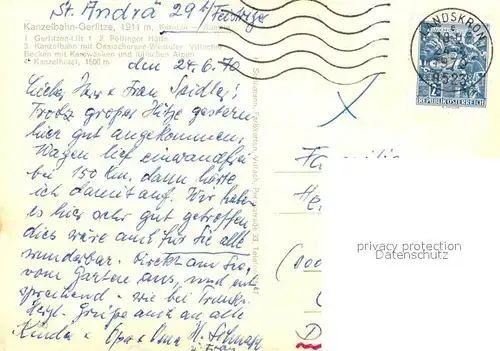 St. Andrä 29 b/
Kanzelbahn-Gerlitze, 1911 m, Kärnten
1 Gerlitzen-Lift 1 2. Pöllinger Hütte
3. Kanzelbahn mit Ossiachersee-Westufer Villacher
Becken mit Karawanken und Julischen Alpen
4 Kanzelhöhe, 1500 m
den 24.6.70
Liebe Herr u Frau Seidler!
Trotz großer Hitze gestern
hier gut angekommen,
Wagen lief einwandfrei
bei 150 km, dann hörte
ich damit auf. Wir haben
es hier sehr gut getroffen
dies wäre auch für Sie alle
wunderbar. Direkt am See,
vom Garten aus, und ent
sprechend - wie bei
Herzl. Grüße auch an alle
Kinder u Opa u Oma H.
u Frau
LANDSKRON
9523
REPUBLIK ÖSTERREICH
Familie
He
(
D
privacy protection
watermark